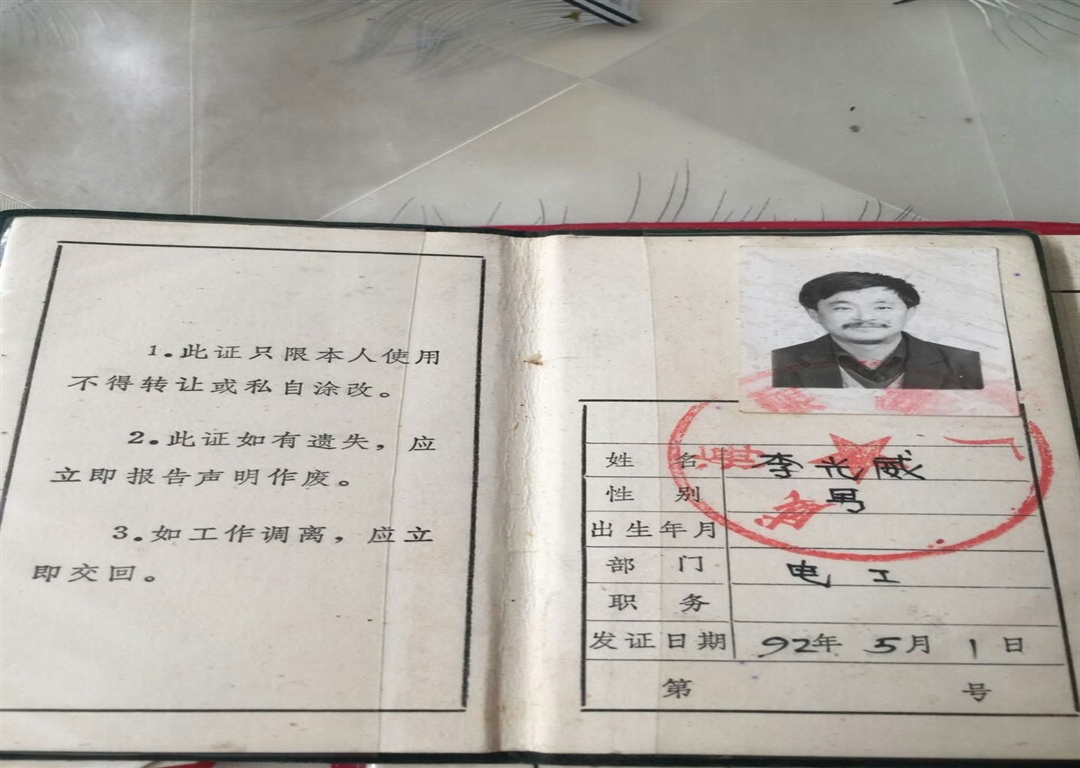 1.此证只限本人使用
不得转让或私自涂改。
2.此证如有遗失，应
立即报告声明作废。
3.如工作调离，应立
即交回。
姓名 李光威
性别 男
出生年月
部门 电工
职务
发证日期 92年5月1日
第 号